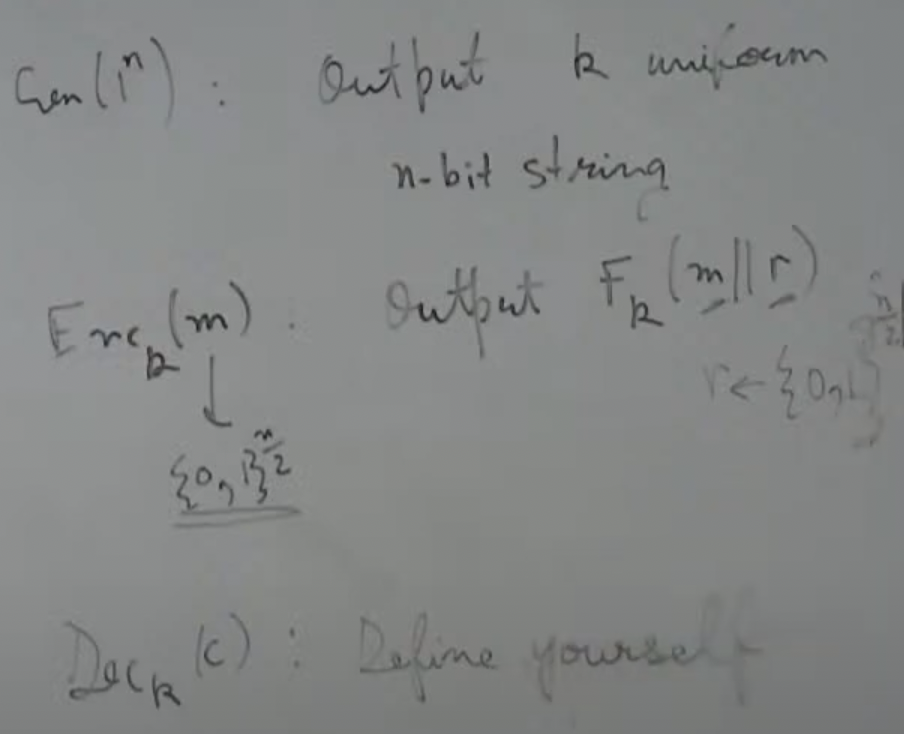 Gen(1^n) : Output k uniform
n-bit string
Enc_k(m) : Output F_k(m||r)
r ← {0,1}^{n/2}
↓
{0,1}^{n/2}
Dec_k(c) : Define yourself